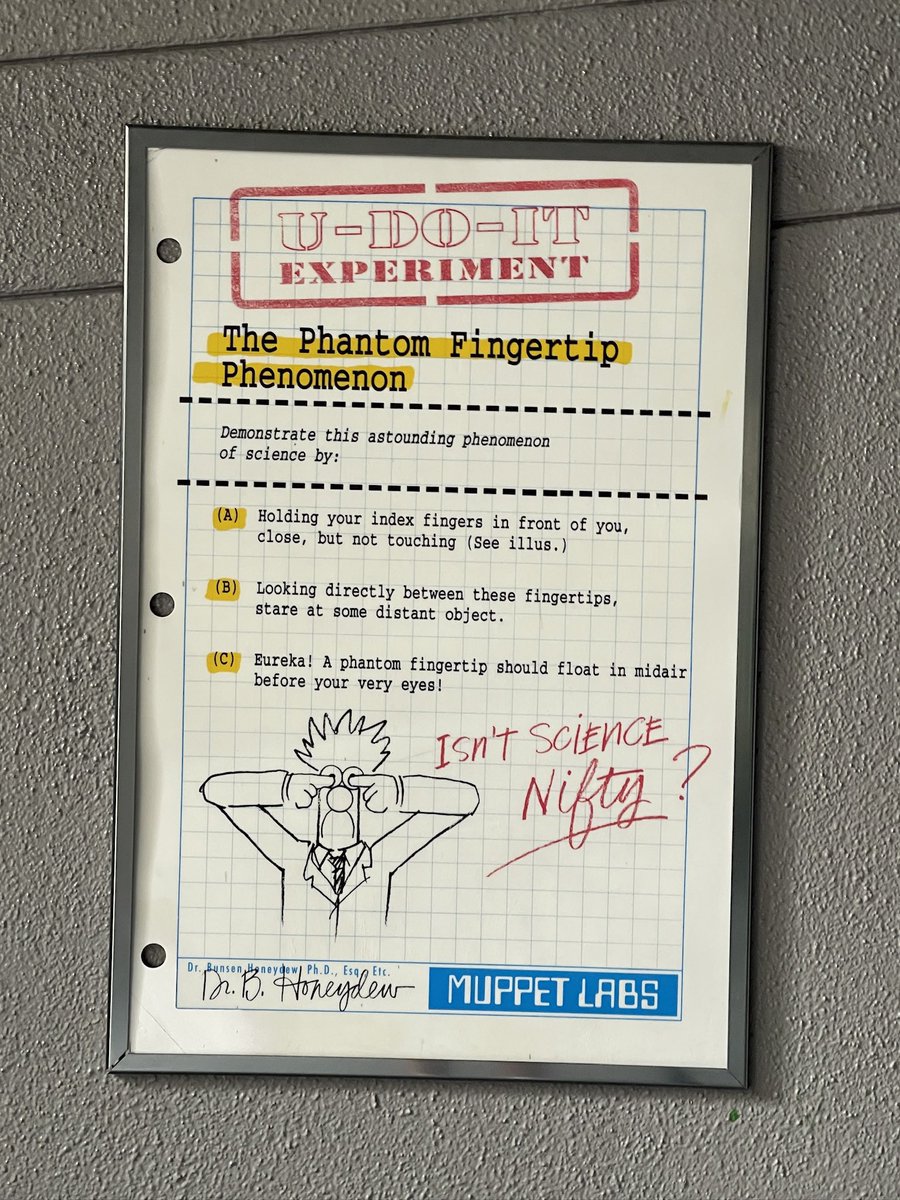 U-DO-IT
EXPERIMENT
The Phantom Fingertip
Phenomenon
Demonstrate this astounding phenomenon
of science by:
(A) Holding your index fingers in front of you,
close, but not touching (See illus.)
(B) Looking directly between these fingertips,
stare at some distant object.
(C) Eureka! A phantom fingertip should float in midair
before your very eyes!
Isn't SCIENCE
Nifty?
Dr. Bunsen Honeydew, Ph.D., Esq., Etc.
Dr. B. Honeydew
MUPPET LABS